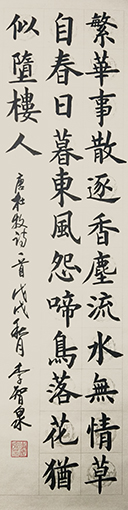 繁華事散逐香塵流水無情草
自春日暮東風怨啼鳥落花猶
似墮樓人
唐杜牧詩一首戊戌秋月李智泉